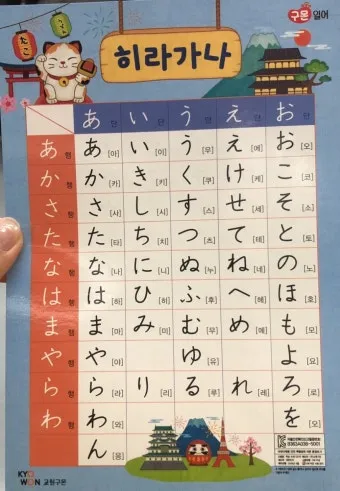 구몬 일어
히라가나
あ단 い단 う단 え단 お단
あ행 あ[아] い[이] う[우] え[에] お[오]
か행 か[카] き[키] く[쿠] け[케] こ[코]
さ행 さ[사] し[시] す[스] せ[세] そ[소]
た행 た[타] ち[치] つ[츠] て[테] と[토]
な행 な[나] に[니] ぬ[누] ね[네] の[노]
は행 は[하] ひ[히] ふ[후] へ[헤] ほ[호]
ま행 ま[마] み[미] む[무] め[메] も[모]
や행 や[야] ゆ[유] よ[요]
ら행 ら[라] り[리] る[루] れ[레] ろ[로]
わ행 わ[와] を[오]
ん[응]
KYO
WON 교원구몬